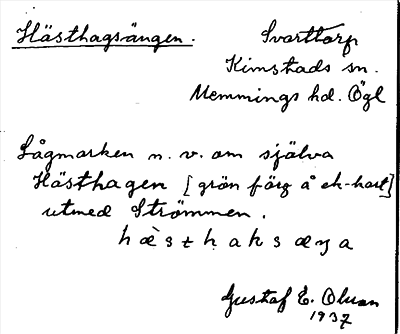 Hästhagsängen. Svarttorp
Kimstads sn.
Memmings hd. Ögl
Lågmarken n. v. om själva
Hästhagen [grön färg å ek-kart]
utmed Strömmen.
Gustaf E. Olsson
1937